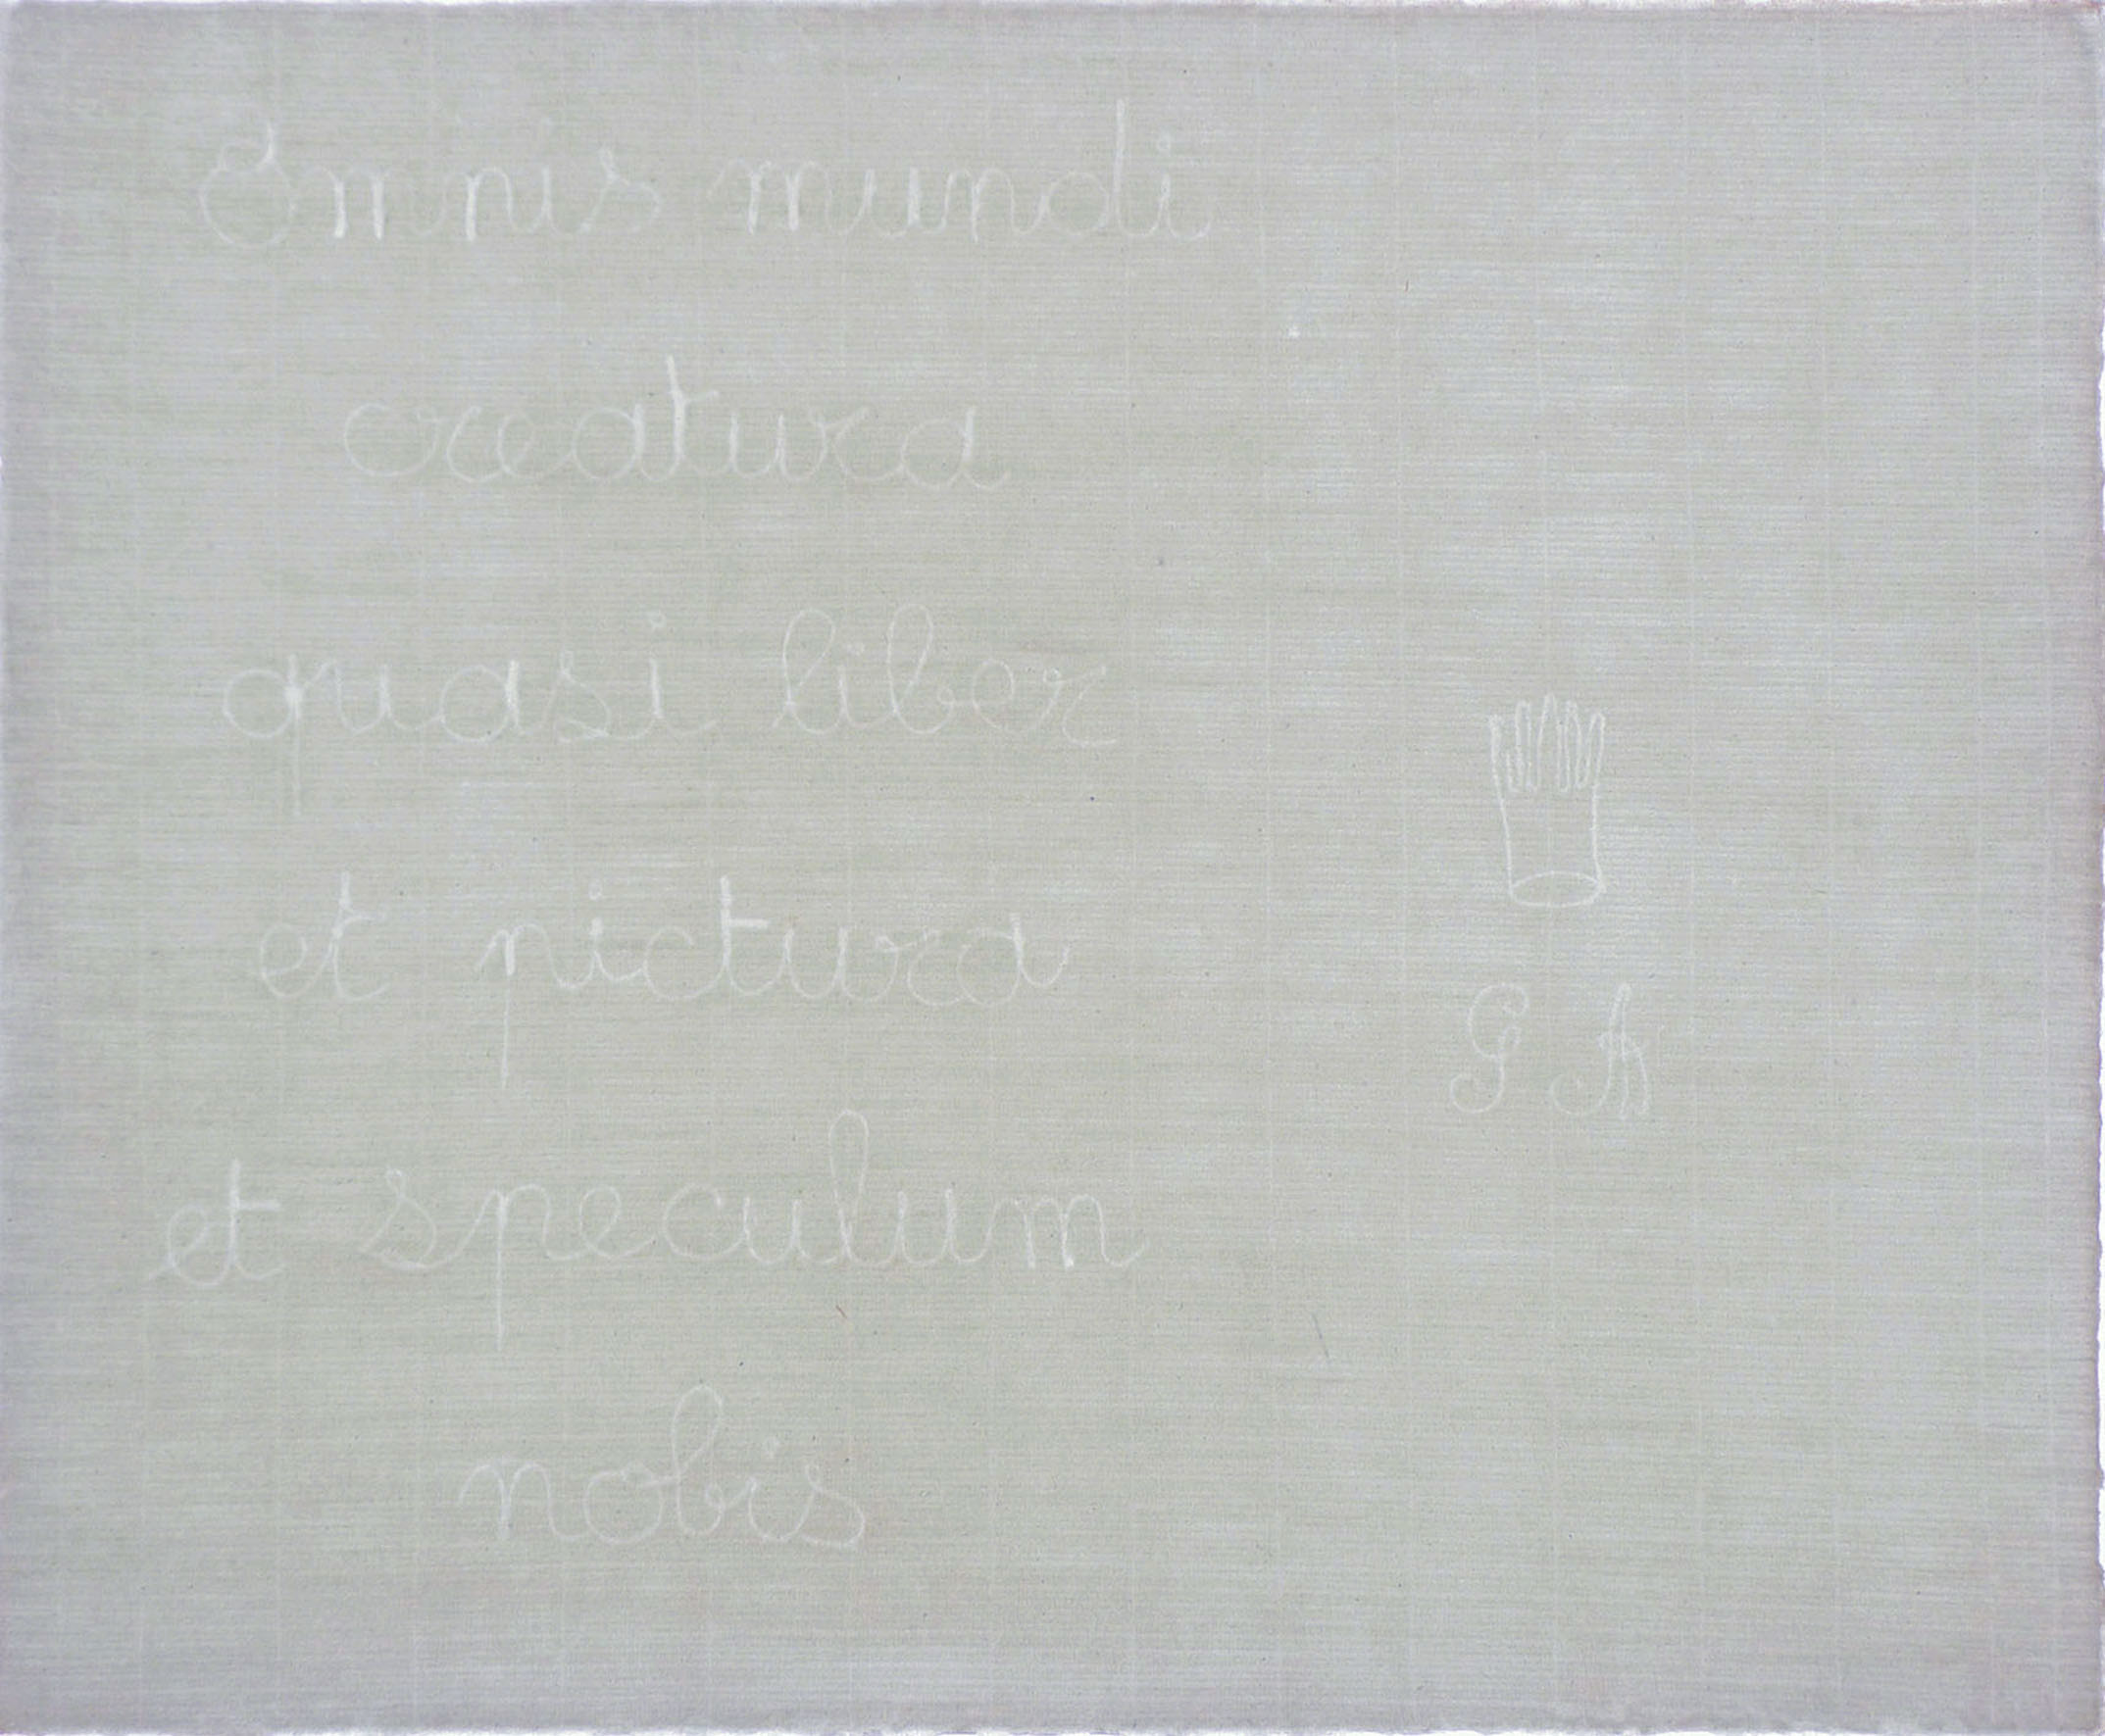 Omnis mundi
creatura
quasi liber
et pictura
et speculum
nobis
G A